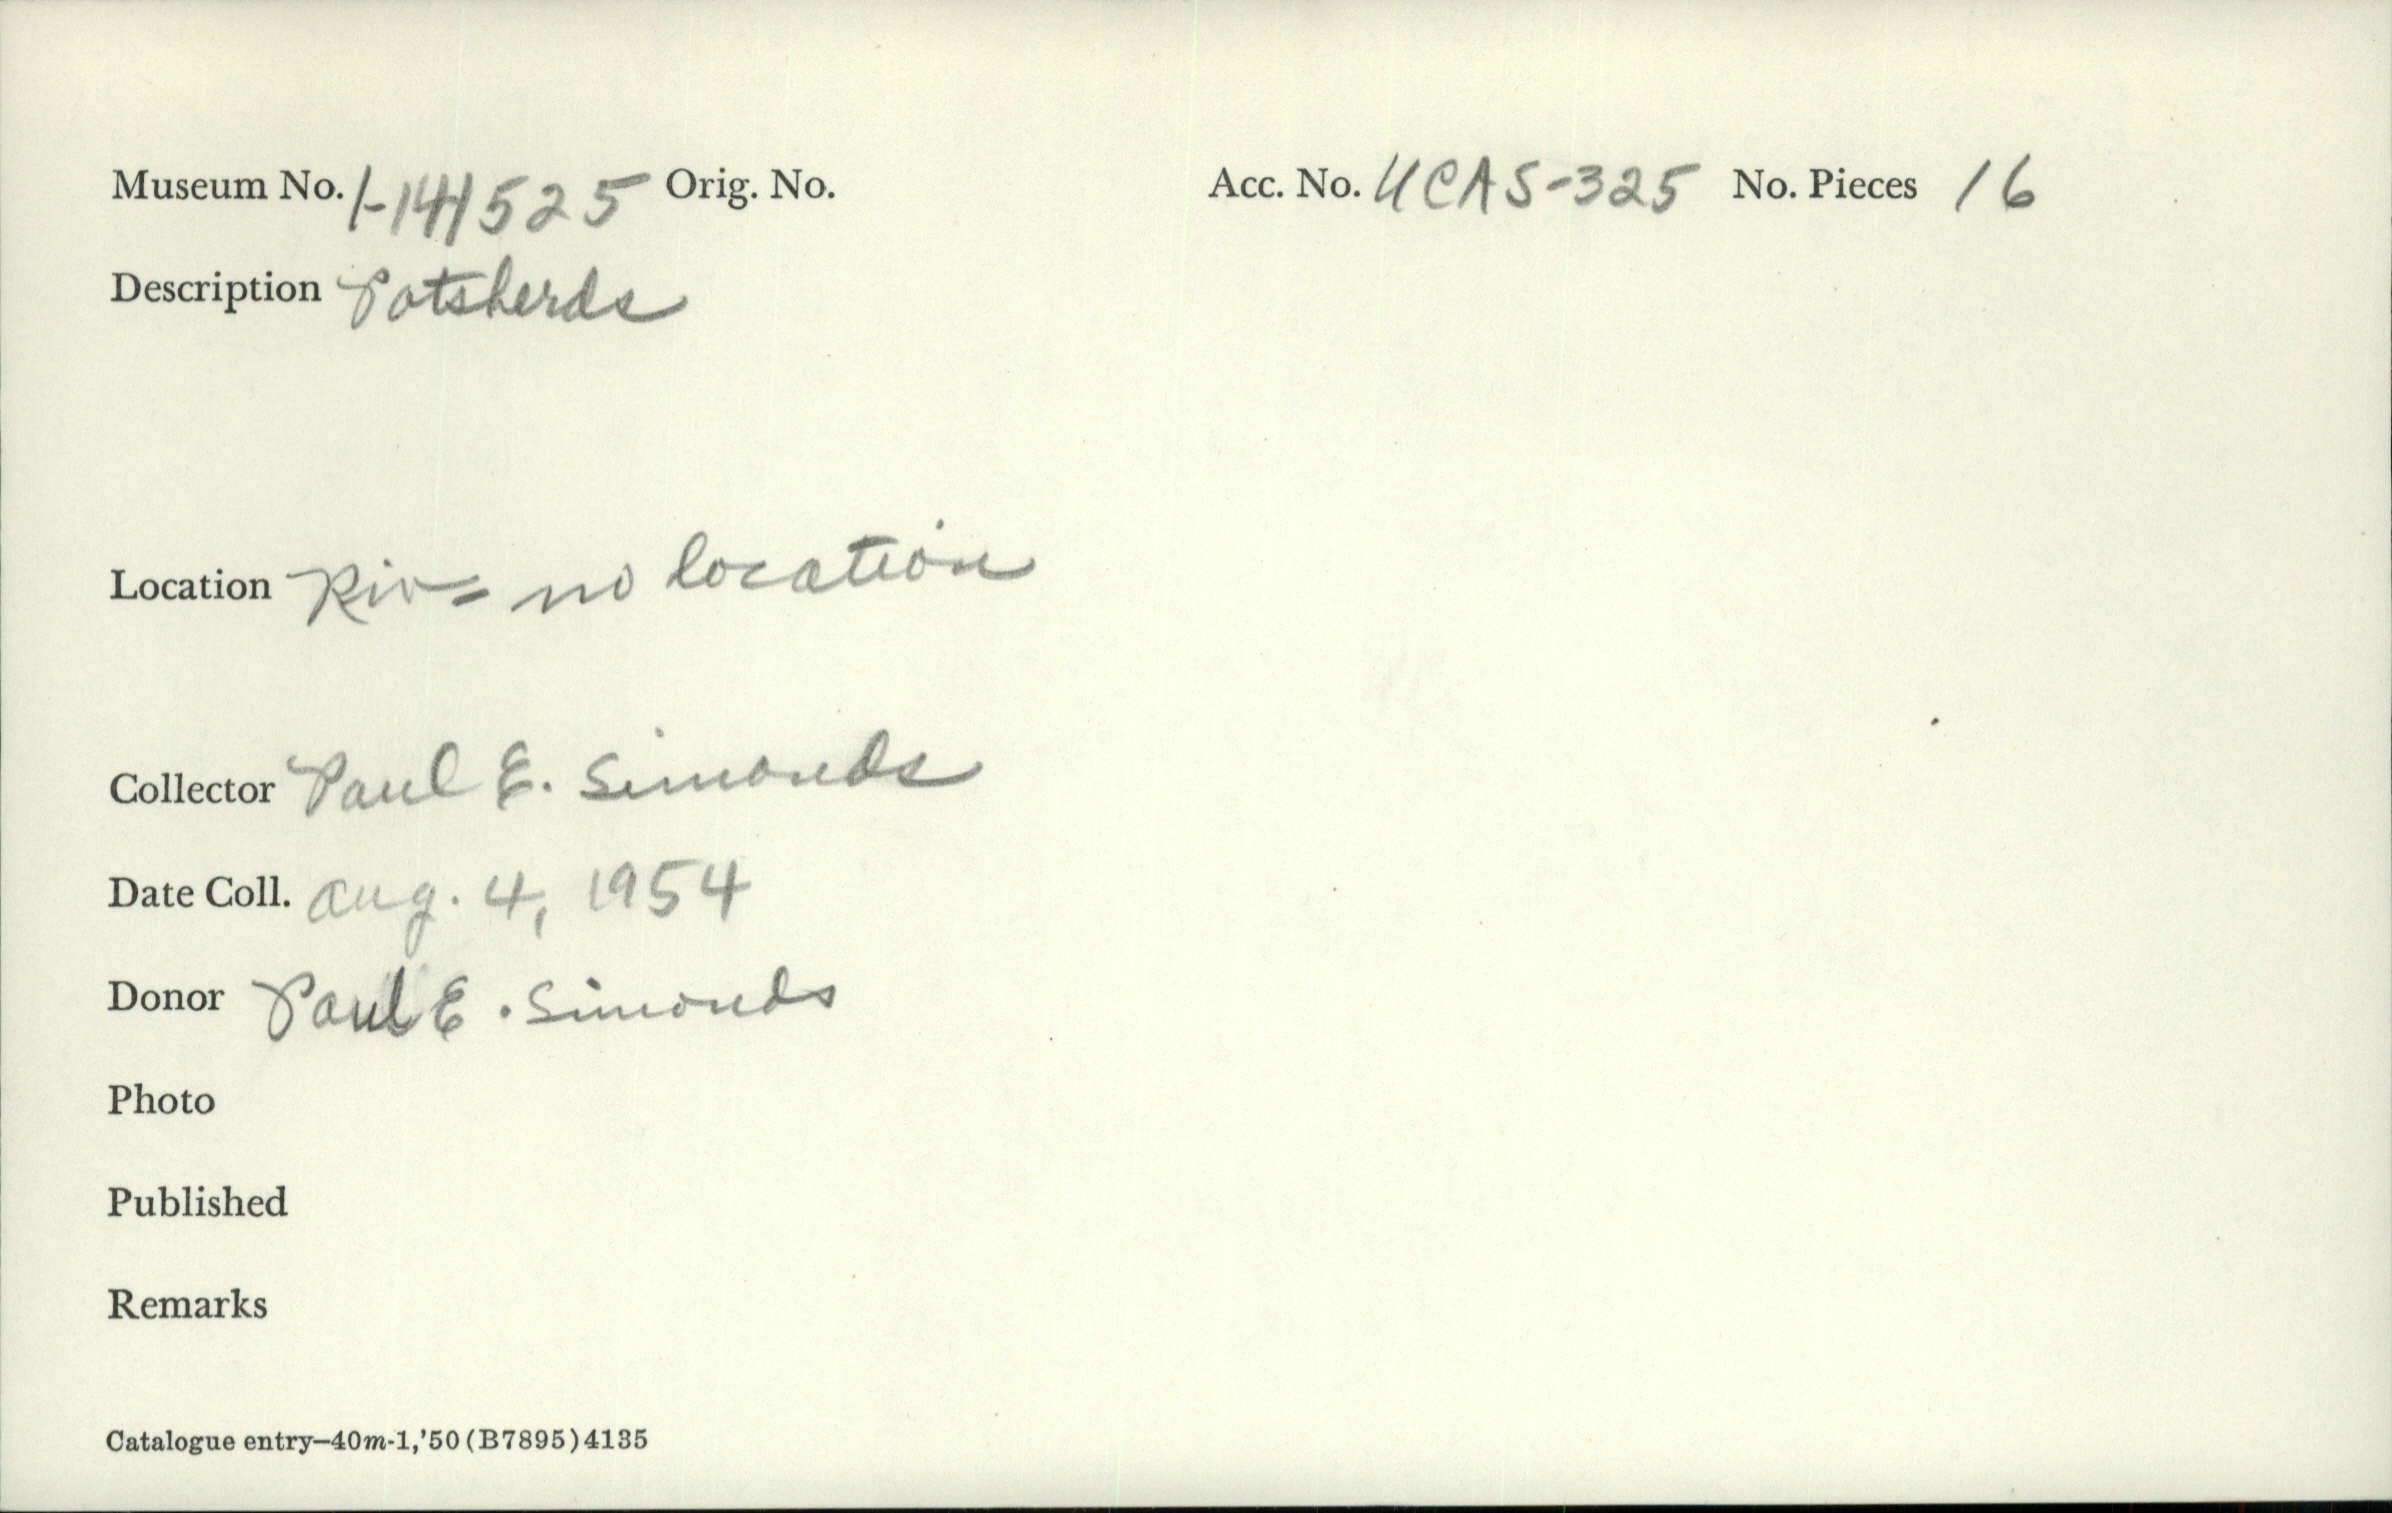 Museum No. 1-141525 Orig. No. Acc. No. UCAS-325 No. Pieces 16
Description Potsherds
Location Riv= no location
Collector Paul E. Simonds
Date Coll. Aug. 4, 1954
Donor Paul E. Simonds
Photo
Published
Remarks
Catalogue entry—40m-1,'50(B7895)4135